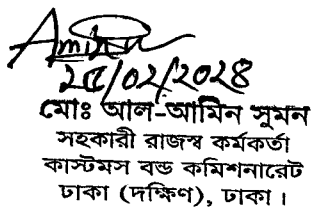 Amin
২৫/০২/২০২৪
মোঃ আল-আমিন সুমন
সহকারী রাজস্ব কর্মকর্তা
কাস্টমস বন্ড কমিশনারেট
ঢাকা (দক্ষিণ), ঢাকা।